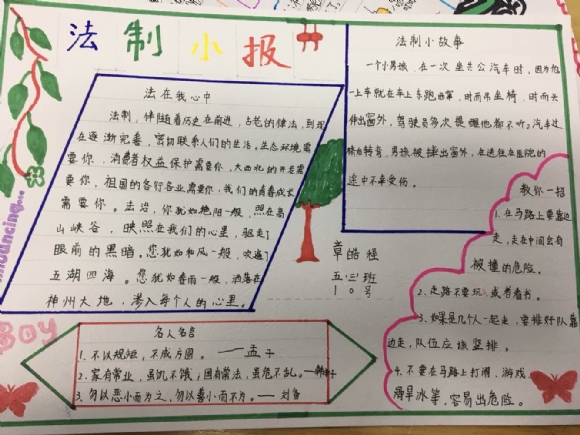 法制小报
法在我心中
法制,伴随着历史在前进,古老的律法,到现
在逐渐完善,密切联系人们的生活。生态环境需
要你,消费者权益保护需要你,大西北的开发需
要你,祖国的各行各业需要你,我们的青春成长
需要你。法治,你就如艳阳一般,照在高
山峡谷,映照在我们的心里,驱走了
眼前的黑暗。您就如和风一般,吹遍了
五湖四海。您就如春雨一般,洒落在
神州大地,渗入每个人的心里。
法制小故事
一个小男孩,在一次坐公共汽车时,因为他
一上车就在车上
时而吊坐椅,时而头
伸出窗外,驾驶员多次提醒他都不听,汽车过
转弯,男孩被摔出窗外,在送往医院的
途中不幸受伤。
章皓
五(三)班
10号
教你一招
1.在马路上要靠边
走,走在中间会有
被撞的危险。
2.走路不要玩或者看书。
3.如果是几个人一起走,要排好队靠
边走,队伍应该竖排。
4.不要在马路上打闹,游戏,
滑旱冰等,容易出危险。
名人名言
1.不以规矩,不成方圆。——孟子
2.家有常业,虽饥不饿;国有常法,虽危不乱。——韩非子
3.勿以恶小而为之,勿以善小而不为。——刘备
Boy